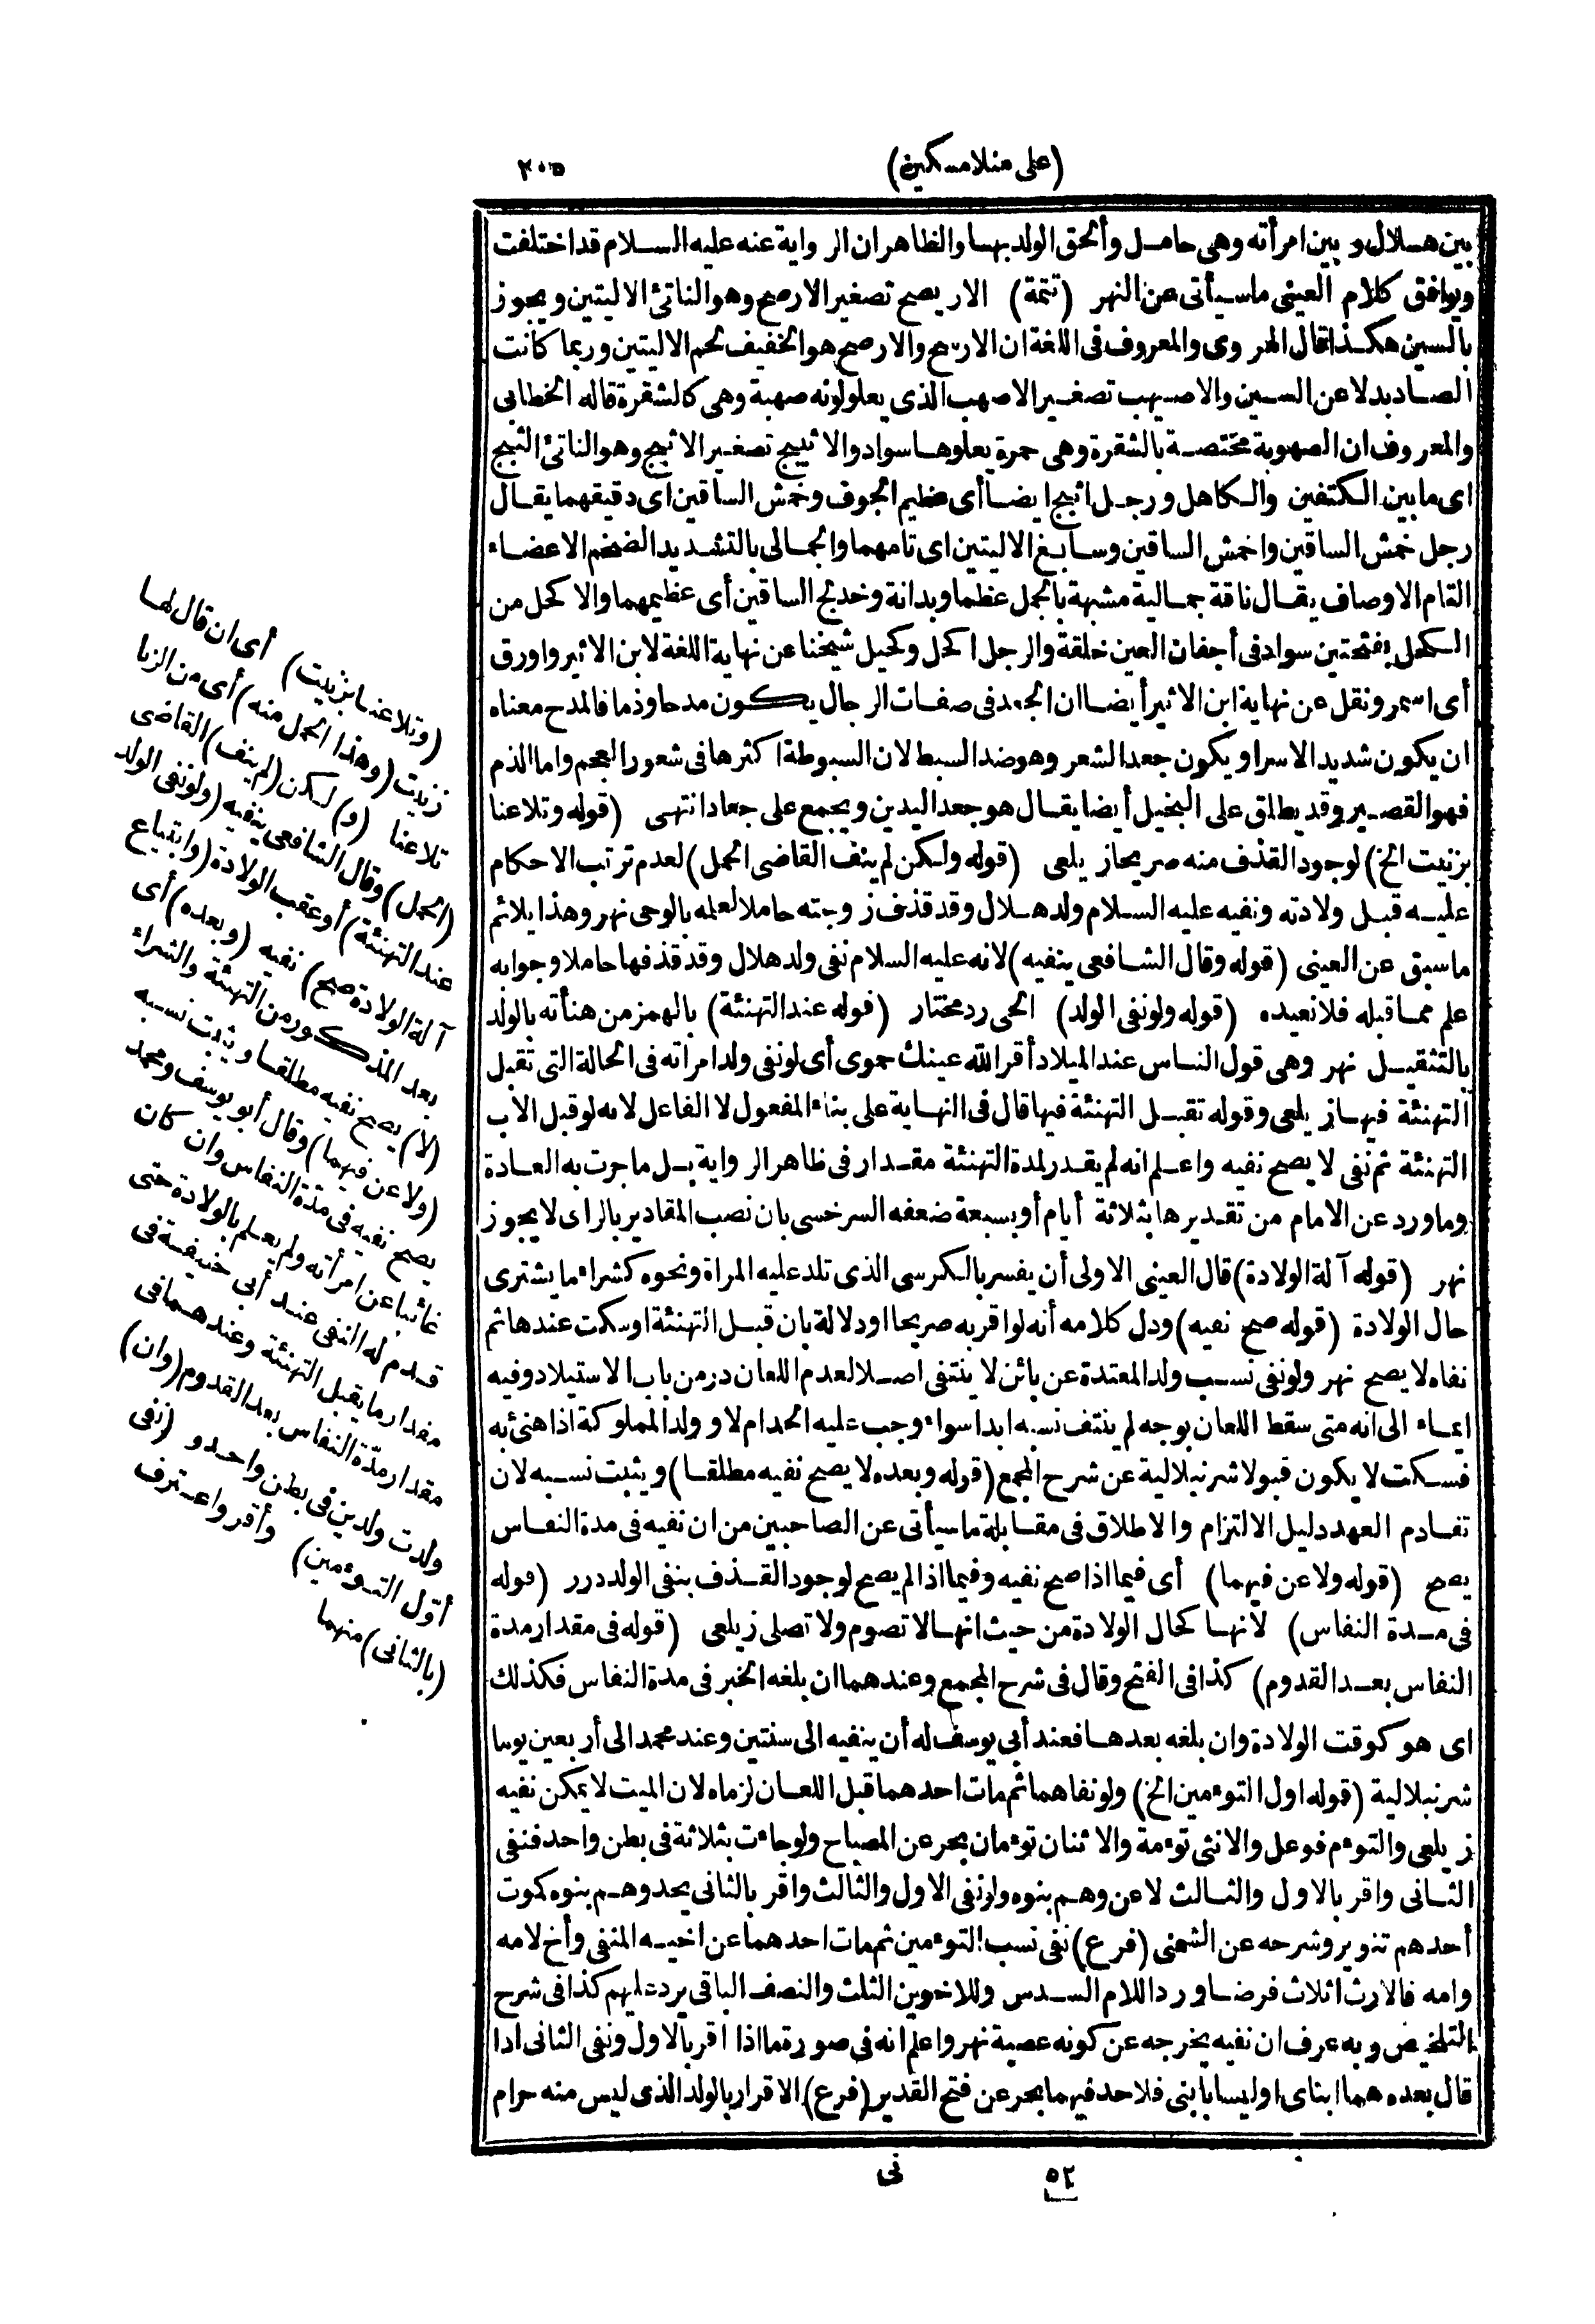 (على منلا مسكين)
٣٠٥
بين هلال وبين امرأته وهى حامل وألحق الولد بها والظاهر ان الرواية عنه عليه السلام قد اختلفت
ويوافق كلام العينى ما سيأتى عن النهر (تتمة) الاريصح تصغير الارصح وهو الناتئ الاليتين ويجوز
بالسين هكذا قال الهروى والمعروف فى اللغة ان الارسح والارصح هو الخفيف لحم الاليتين وربما كانت
الصاد بدلا عن السين والاصيهب تصغير الاصهب الذى يعلو لونه صهبة وهى كالشقرة قاله الخطابى
والمعروف ان الصهوبة مختصة بالشقرة وهى حمرة يعلوها سواد والاثيبج تصغير الاثبج وهو الناتئ الثبج
اى ما بين الكتفين والكاهل ورجل اثبج ايضا أى عظيم الجوف وخمش الساقين اى دقيقهما يقال
رجل خمش الساقين واخمش الساقين وسابغ الاليتين اى تامهما والجمالى بالتشديد الضخم الاعضاء
التام الاوصاف يقال ناقة جمالية مشبهة بالجمل عظما وبدانة وخدلج الساقين أى عظيمهما والاكحل من
الكحل بفتحتين سواد فى أجفان العين خلقة والرجل اكحل وكحيل شيخنا عن نهاية اللغة لابن الاثير واورق
أى اسمر ونقل عن نهاية ابن الاثير أيضا ان الجعد فى صفات الرجال يكون مدحا وذما فالمدح معناه
ان يكون شديد الاسر او يكون جعد الشعر وهو ضد السبط لان السبوطة اكثرها فى شعور العجم واما الذم
فهو القصير وقد يطلق على البخيل أيضا يقال هو جعد اليدين ويجمع على جعاد انتهى (قوله وتلاعنا
بزنيت الخ) لوجود القذف منه صريحا زيلعى (قوله ولكن لم ينف القاضى الحمل) لعدم ترتب الاحكام
عليه قبل ولادته ونفيه عليه السلام ولد هلال وقد قذف زوجته حاملا لعلمه بالوحى نهر وهذا يلائم
ما سبق عن العينى (قوله وقال الشافعى ينفيه) لانه عليه السلام نفى ولد هلال وقد قذفها حاملا وجوابه
علم مما قبله فلا نعيده (قوله ولو نفى الولد) الحى رد محتار (قوله عند التهنئة) بالهمز من هنأته بالولد
بالتثقيل نهر وهى قول الناس عند الميلاد أقر الله عينك حموى أى لو نفى ولد امراته فى الحالة التى تقبل
التهنئة فيها زيلعى وقوله تقبل التهنئة فيها قال فى النهاية على بناء المفعول لا الفاعل لانه لو قبل الأب
التهنئة ثم نفى لا يصح نفيه واعلم انه لم يقدر لمدة التهنئة مقدار فى ظاهر الرواية بل ما جرت به العادة
وما ورد عن الامام من تقديرها بثلاثة أيام أو بسبعة ضعفه السرخسى بان نصب المقادير بالراى لا يجوز
نهر (قوله آلة الولادة) قال العينى الاولى أن يفسر بالكرسى الذى تلد عليه المراة ونحوه كشراء ما يشترى
حال الولادة (قوله صح نفيه) ودل كلامه أنه لو اقر به صريحا او دلالة بان قبل التهنئة او سكت عندها ثم
نفاه لا يصح نهر ولو نفى نسب ولد المعتدة عن بائن لا ينتفى اصلا لعدم اللعان درر من باب الاستيلاد وفيه
ايماء الى انه متى سقط اللعان بوجه لم ينتف نسبه ابدا سواء وجب عليه الحد ام لا وولد المملوكة اذا هنئ به
فسكت لا يكون قبولا شرنبلالية عن شرح المجمع (قوله وبعده لا يصح نفيه مطلقا) ويثبت نسبه لان
تقادم العهد دليل الالتزام والاطلاق فى مقابلة ما سيأتى عن الصاحبين من ان نفيه فى مدة النفاس
يصح (قوله ولاعن فيهما) أى فيما اذا صح نفيه وفيما اذا لم يصح لوجود القذف بنفى الولد درر (قوله
فى مدة النفاس) لانها كحال الولادة من حيث انها لا تصوم ولا تصلى زيلعى (قوله فى مقدار مدة
النفاس بعد القدوم) كذا فى الفتح وقال فى شرح المجمع وعندهما ان بلغه الخبر فى مدة النفاس فكذلك
اى هو كوقت الولادة وان بلغه بعدها فعند أبى يوسف له أن ينفيه الى سنتين وعند محمد الى أربعين يوما
شرنبلالية (قوله اول التوءمين الخ) ولو نفاهما ثم مات احدهما قبل اللعان لزماه لان الميت لا يمكن نفيه
زيلعى والتوءم فوعل والانثى توءمة والاثنان توءمان بحر عن المصباح ولو جاءت بثلاثة فى بطن واحد فنفى
الثانى واقر بالاول والثالث لاعن وهم بنوه ولو نفى الاول والثالث واقر بالثانى يحد وهم بنوه كموت
أحدهم تنوير وشرحه عن الشمنى (فرع) نفى نسب التوءمين ثم مات احدهما عن اخيه المنفى وأخ لامه
وامه فالارث اثلاث فرضا وردا للام السدس وللاخوين الثلث والنصف الباقى يرد عليهم كذا فى شرح
التلخيص وبه عرف ان نفيه يخرجه عن كونه عصبة نهر واعلم انه فى صورة ما اذا اقر بالاول ونفى الثانى اذا
قال بعده هما ابناى او ليسا بابنى فلا حد فيهما بحر عن فتح القدير (فرع) الاقرار بالولد الذى ليس منه حرام
(وتلاعنا بزنيت) أى ان قال لها
زنيت (وهذا الحمل منه) أى من الزنا
تلاعنا (و) لكن (لم ينف) القاضى
(الحمل) وقال الشافعى ينفيه (ولو نفى الولد
عند التهنئة) أو عقب الولادة (وابتياع
آلة الولادة صح) نفيه (وبعده) أى
بعد المذكور من التهنئة والشراء
(لا) يصح نفيه مطلقا ويثبت نسبه
(ولاعن فيهما) وقال أبو يوسف ومحمد
يصح نفيه فى مدة النفاس وان كان
غائبا عن امرأته ولم يعلم بالولادة حتى
قدم له النفى عند أبى حنيفة فى
مقدار ما يقبل التهنئة وعندهما فى
مقدار مدّة النفاس بعد القدوم (وان)
ولدت ولدين فى بطن واحد و (نفى
أوّل التوءمين) وأقر واعترف
(بالثانى) منهما
٥٢
نى